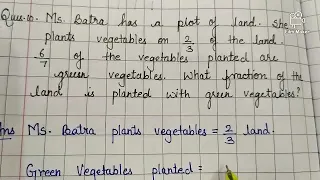 Ques:10. Ms. Batra has a plot of land. She
plants vegetables on 2/3 of the land.
6/7 of the vegetables planted are
green vegetables. What fraction of the
land is planted with green vegetables?
Ans Ms. Batra plants vegetables = 2/3 land.
Green Vegetables planted =